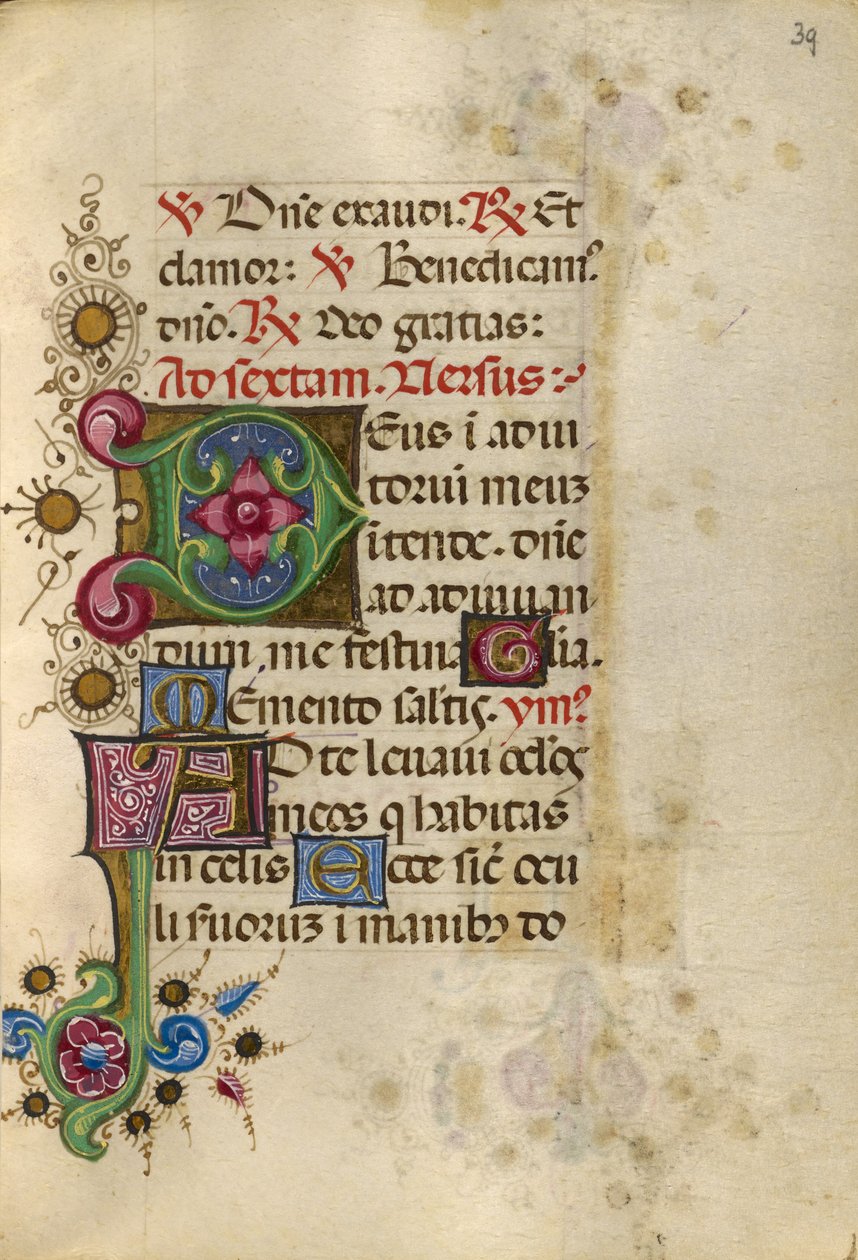 39
℣ Dñe exaudi. ℟ Et
clamor: ℣ Benedicam⁹
dño. ℟ Deo gratias:
Ad sextam. Versus:
DEus ĩ adiu
toriũ meuʒ
ĩtende. dñe
ad adiuuan
dum me festina Glia.
MEmento sal'tis. ym⁹
AD te leuaui ocl'os
meos q habitas
in celis Ecce sic̃ ocu
li suoruʒ ĩ manibꝫ do